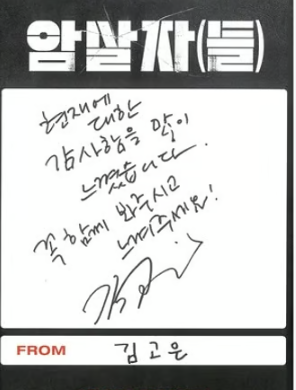 암살자(들)
현재에
대한
감사함을 많이
느꼈습니다.
꼭 함께 봐주시고
느껴주세요!
FROM
김고은